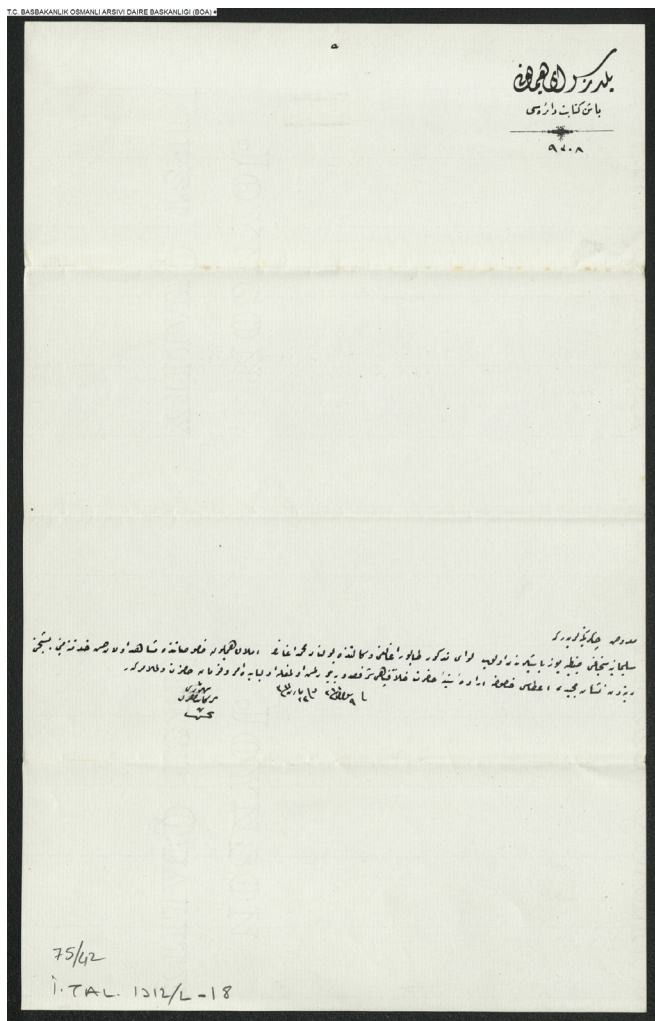 T.C. BASBAKANLIK OSMANLI ARSIVI DAIRE BASKANLIGI (BOA)
يلديز سراى همايونى
باش كتابت دائره سى
٩٧٠٨
معروض چاكر كمينه لريدر كه
سليمانيه سنجاغى ضبطيه يوز باشيلرندن اولوب لواى مذكور طابور اغالغى وكالتنده بولنان محمد اغانك املاك همايون خصوصاتنده مشاهد اولان حسن خدمتنه مبنى بشنجى
رتبه دن نشان مجيدى اعطاسى خصوصنه اراده سنيه حضرت خلافتپناهى شرفصدور بيورلمش اولمغله اولبابده امر و فرمان حضرت ولى الامركدر
سركاتب
75/42
İ.TAL. 1312/L-18